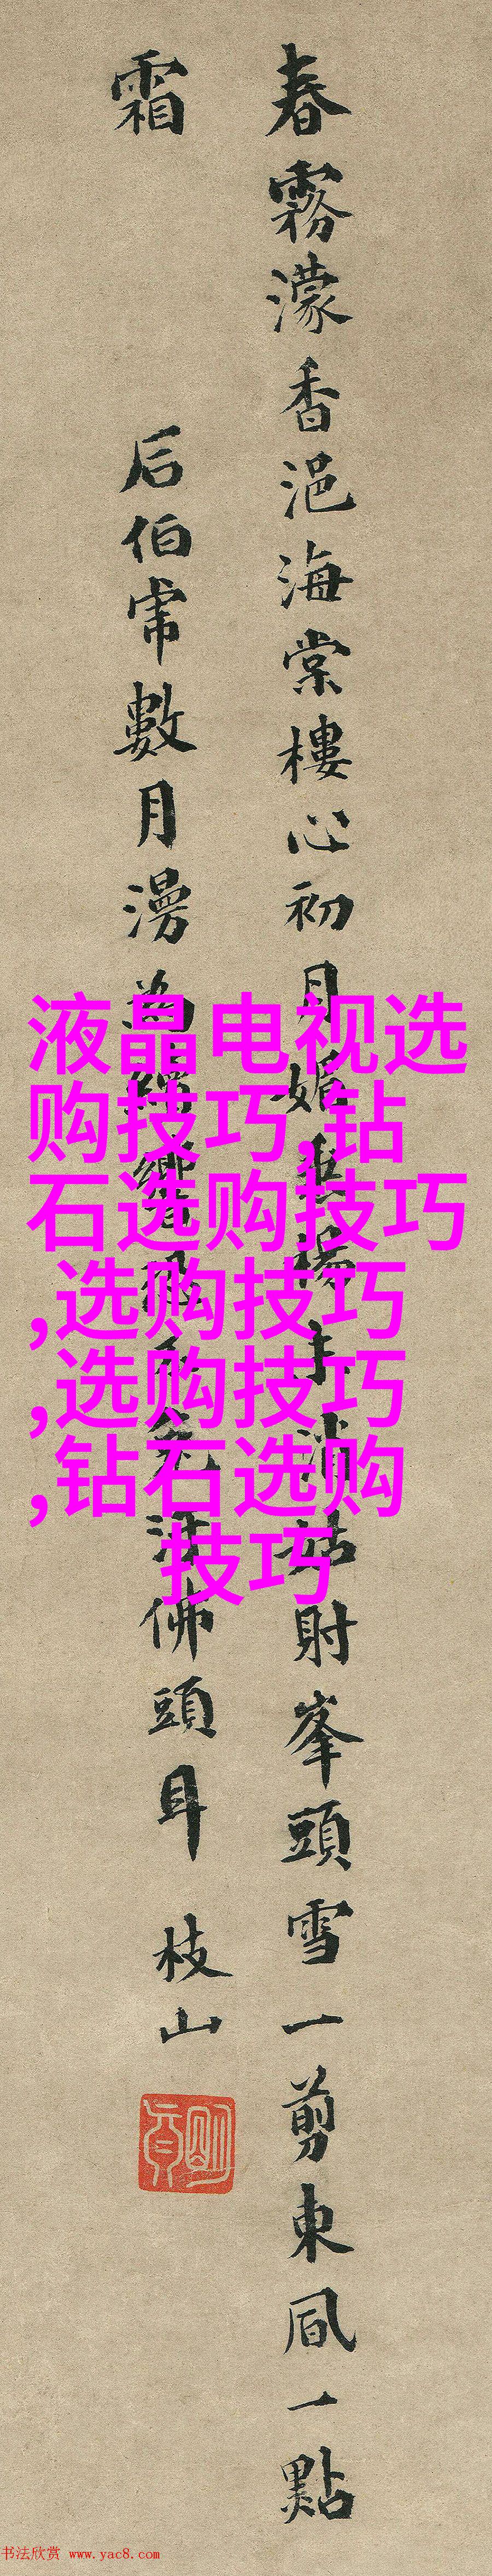 春霧濛香浥海棠樓心初月媚垂楊手消姑射峯頭雪一剪東風一點
霜
后伯常數月漫為不免汙佛頭耳
枝山
液晶电视选
购技巧,钻
石选购技巧
,选购技巧
,选购技巧
,钻石选购
技巧
书法欣赏 www.yac8.com